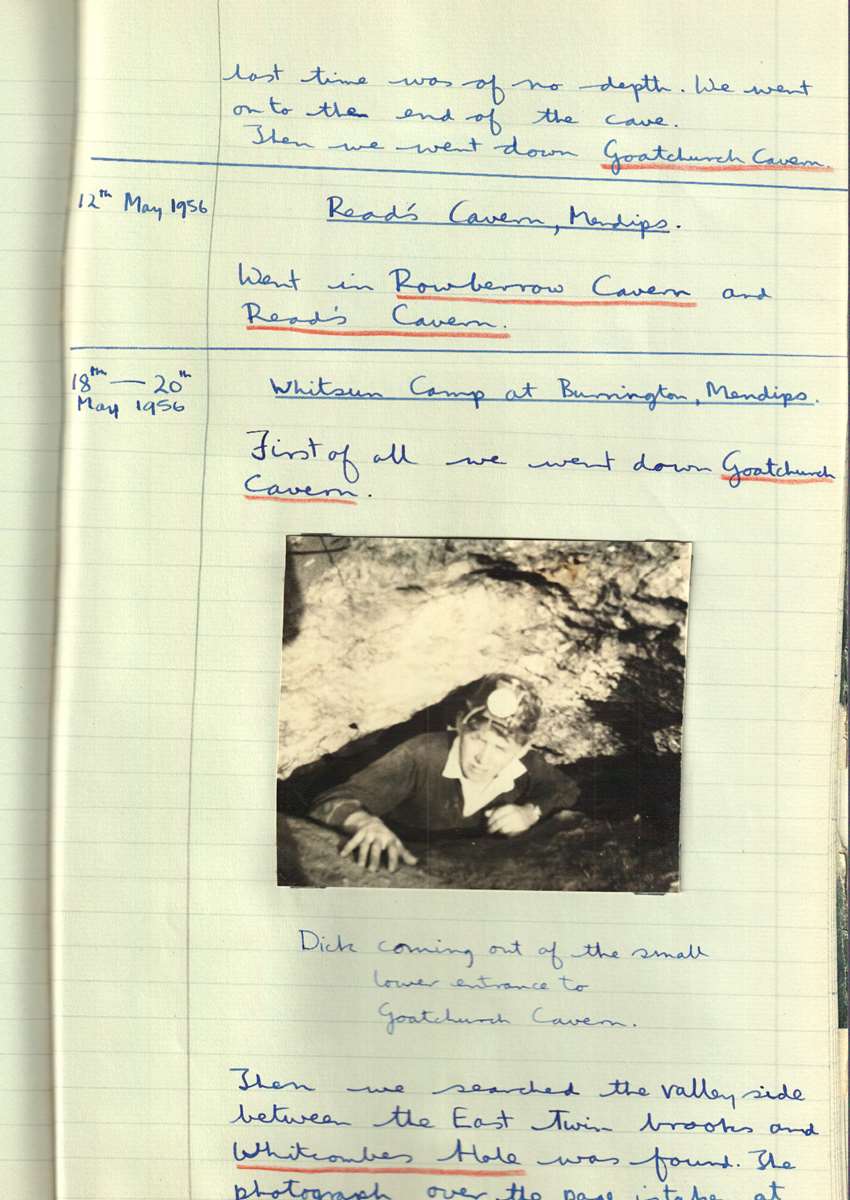 last time was of no depth. We went
on to the end of the cave.
Then we went down Goatchurch Cavern.
12th May 1956
Read's Cavern, Mendips.
Went in Rowberrow Cavern and
Read's Cavern.
18th — 20th
May 1956
Whitsun Camp at Burrington, Mendips.
First of all we went down Goatchurch
Cavern.
Dick coming out of the small
lower entrance to
Goatchurch Cavern.
Then we searched the valley side
between the East Twin brooks and
Whitcombes Hole was found. The
photograph over the page is take at